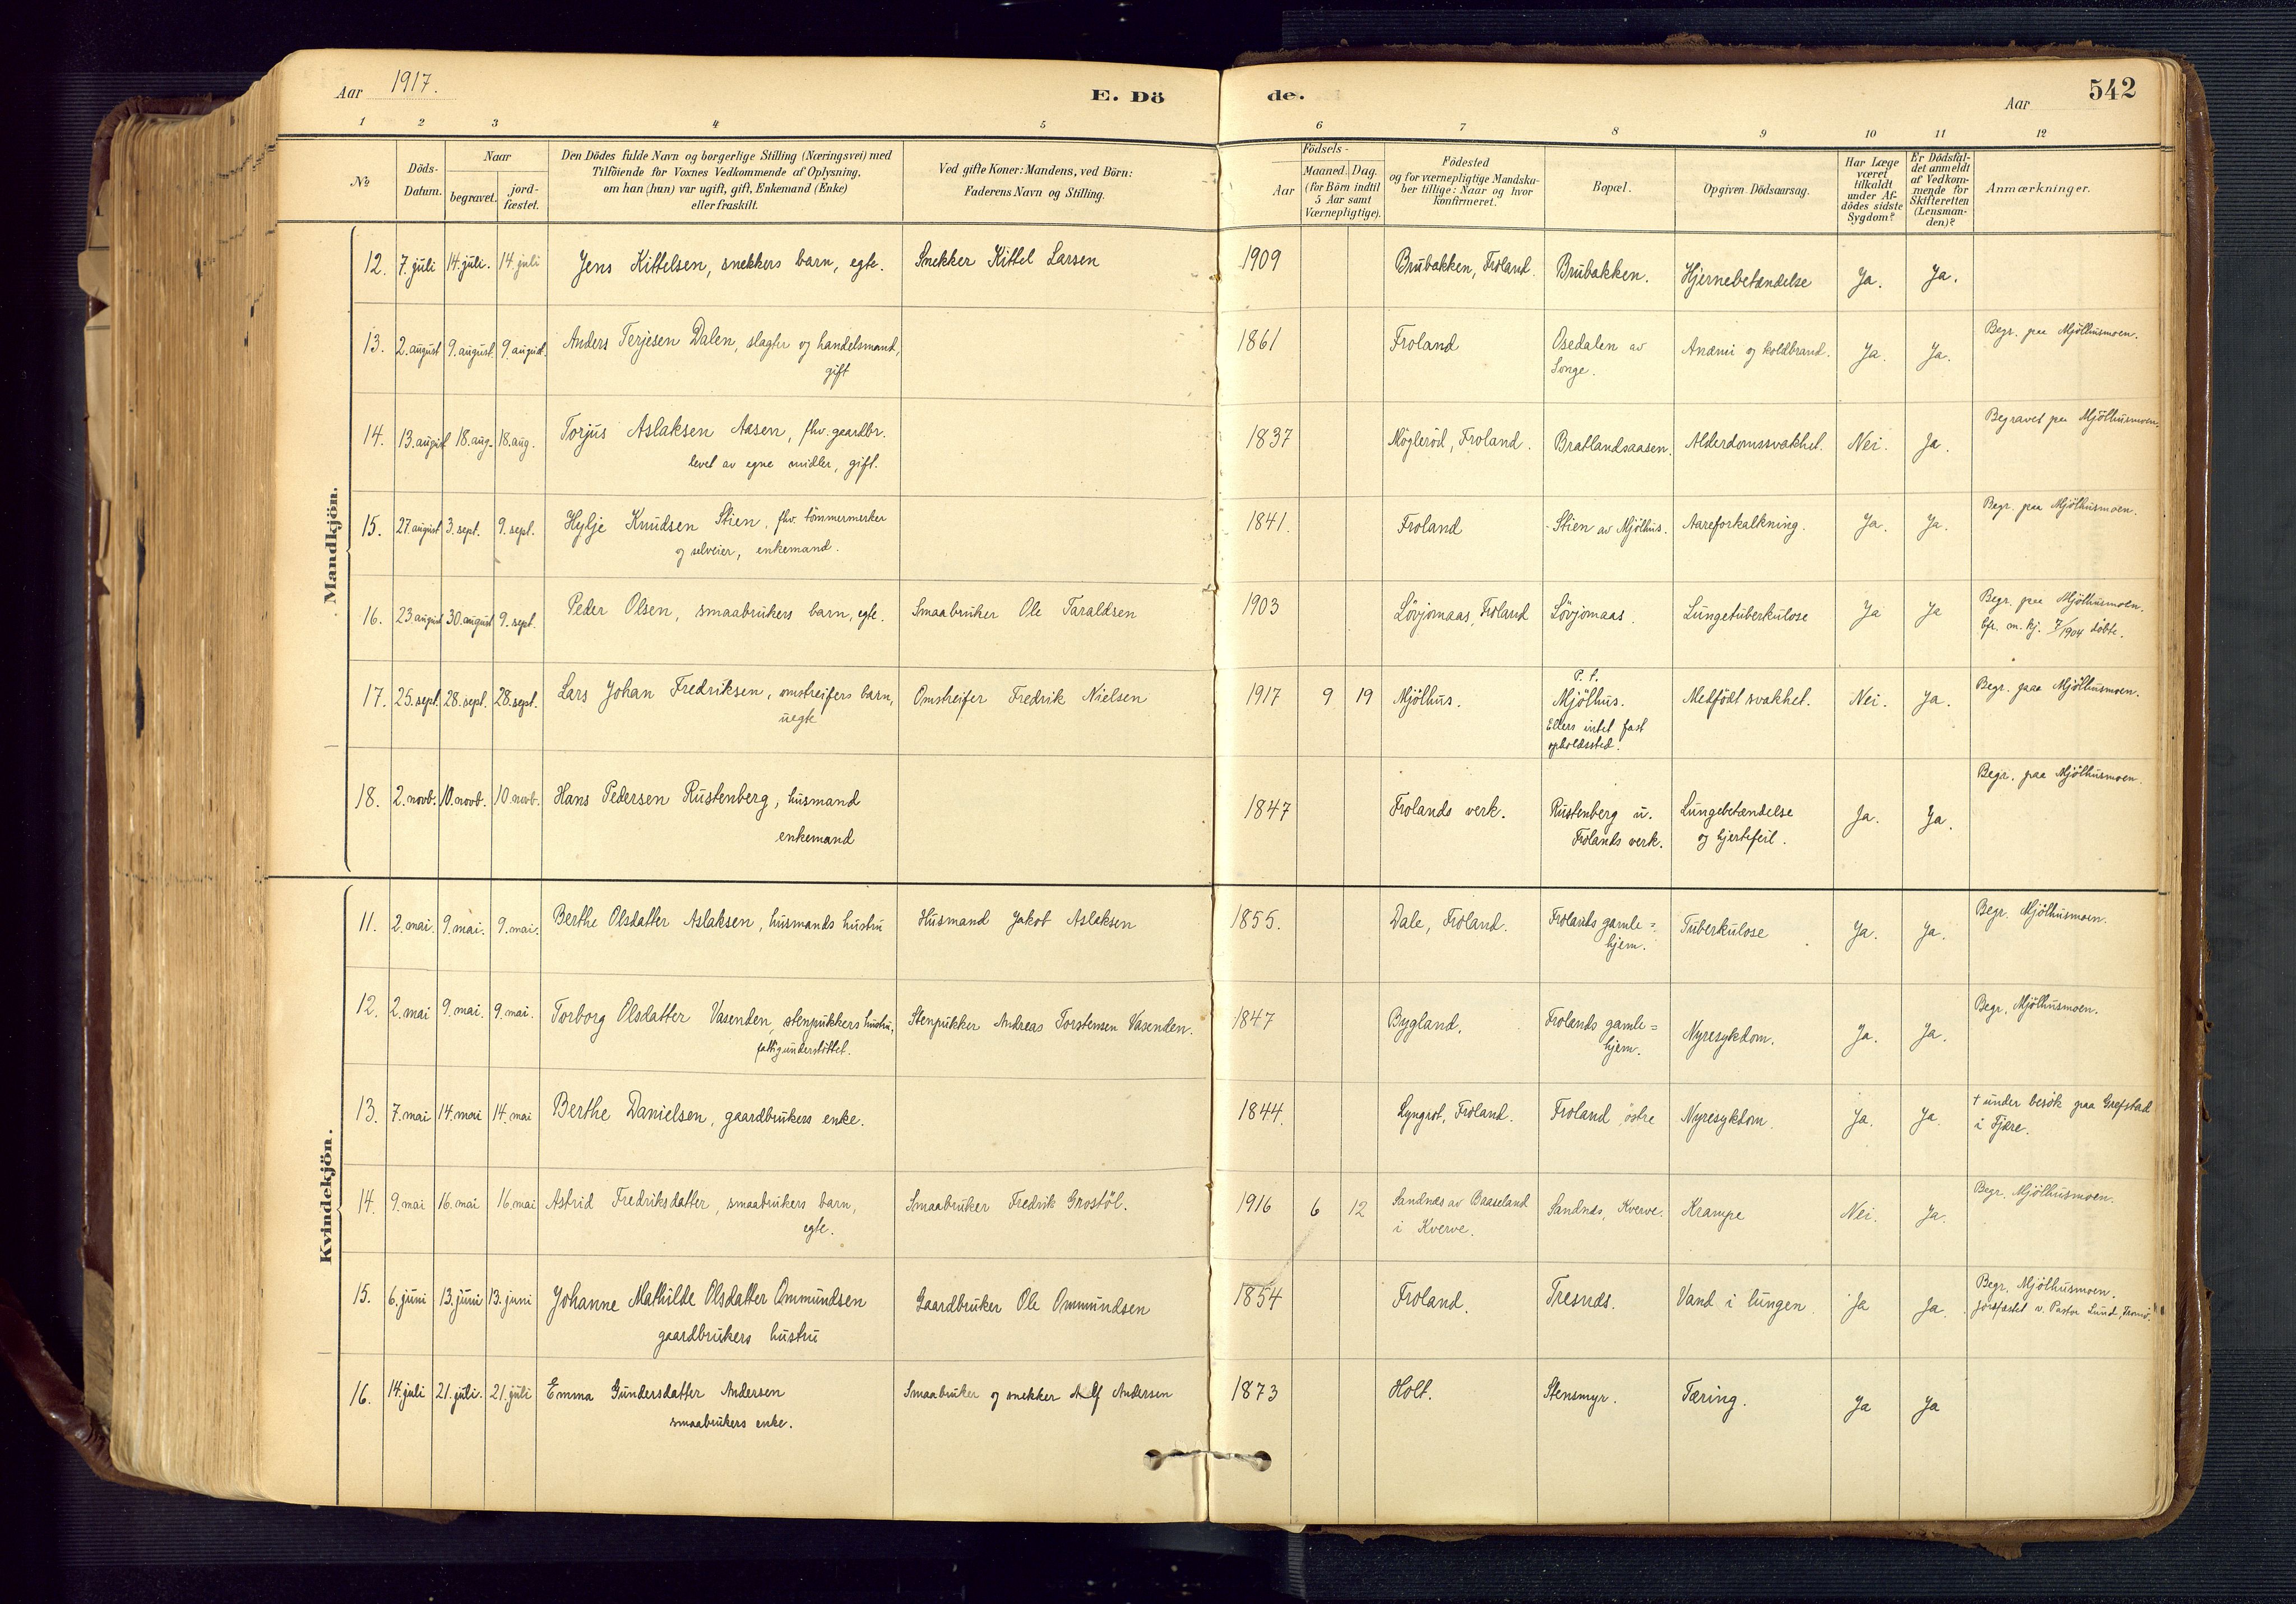 Aar 1917.
E. Dö
de.
Aar
542
1 2 3 4 5 6 7 8 9 10 11 12
No
Döds-
Datum.
Naar
begravet.
jord-
fæstet.
Den Dödes fulde Navn og borgerlige Stilling (Næringsvei) med
Tilföiende for Voxnes Vedkommende af Oplysning,
om han (hun) var ugift, gift, Enkemand (Enke)
eller fraskilt.
Ved gifte Koner: Mandens, ved Börn:
Faderens Navn og Stilling.
Födsels-
Aar
Maaned. Dag.
(for Börn indtil
5 Aar samt
Værnepligtige).
Födested
og for værnepligtige Mandska-
ber tillige: Naar og hvor
konfirmeret.
Bopæl.
Opgiven Dödsaarsag.
Har Læge
været
tilkaldt
under Af-
dödes sidste
Sygdom?
Er Dödsfal-
det anmeldt
af Vedkom-
mende for
Skifteretten
(Lensman-
den)?
Anmærkninger.
Mandkjön.
12. 7. juli 14. juli. 14. juli Jens Kittelsen, snekkers barn, egte. Snekker Kittel Larsen 1909 Brubakken, Froland. Brubakken. Hjernebetændelse Ja. Ja.
13. 2. august 9. august. 9. august. Anders Terjesen Dalen, slagter og handelsmand,
gift
1861 Froland Osedalen av
Songe.
Anæmi og koldbrand. Ja. Ja. Begr. paa Mjölhusmoen.
14. 13. august 18. aug. 18. aug. Torjus Aslaksen Aasen, fhv. gaardbr.
levet av egne midler, gift.
1837 Mögleröd, Froland. Bratlandsaasen. Alderdomssvakhet. Nei. Ja. Begravet paa Mjölhusmoen.
15. 27. august 3. sept. 9. sept. Hylje Knudsen Stien, fhv. tömmermerker
og selveier, enkemand.
1841. Froland Stien av Mjölhus. Aareforkalkning. Ja. Ja. Begr. paa Mjölhusmoen.
16. 23. august 30. august 9. sept. Peder Olsen, smaabrukers barn, egte. Smaabruker Ole Taraldsen 1903 Lövjomaas, Froland Lövjomaas. Lungetuberkulose Ja Ja Begr. paa Mjölhusmoen.
cfr. m. kj. 7/1904 döbte.
17. 25. sept. 28. sept. 28. sept. Lars Johan Fredriksen, omstreifers barn,
uegte
Omstreifer Fredrik Nielsen 1917 9 19 Mjölhus. P. t.
Mjölhus.
Ellers intet fast
opholdssted.
Medfödt svakhet. Nei. Ja. Begr. paaa Mjölhusmoen.
18. 2. novb. 10. novb. 10. novb. Hans Pedersen Rustenberg, husmand
enkemand
1847 Frolands verk. Rustenberg u.
Frolands verk.
Lungebetændelse
og hjertefeil.
Ja. Ja. Begr. paa Mjölhusmoen.
Kvindekjön.
11. 2. mai. 9. mai. 9. mai. Berthe Olsdatter Aslaksen, husmands hustru Husmand Jakob Aslaksen 1855. Dale, Froland. Frolands gamle=
hjem.
Tuberkulose Ja. Ja. Begr. Mjölhusmoen.
12. 2. mai 9. mai. 9. mai. Torborg Olsdatter Vasenden, stenpukkers hustru,
fattigunderstöttet.
Stenpukker Andreas Torstensen Vasenden. 1847 Bygland. Frolands gamle=
hjem.
Nyresykdom. Ja. Ja. Begr. Mjölhusmoen.
13. 7. mai 14. mai 14. mai Berthe Danielsen, gaardbrukers enke. 1844. Lyngrot, Froland. Froland östre Nyresykdom. Ja. Ja. † under besök paa Grefstad
i Fjære.
14. 9. mai 16. mai 16. mai Astrid Fredriksdatter, smaabrukers barn,
egte.
Smaabruker Fredrik Grostöl. 1916 6 12 Sandnes av Baaseland
i Kverve.
Sandnes, Kverve. Krampe Nei. Ja. Begr. Mjölhusmoen.
15. 6. juni 13. juni 13. juni Johanne Mathilde Olsdatter Ommundsen
gaardbrukers hustru
Gaardbruker Ole Ommundsen 1854 Froland. Tresnes. Vand i lungen. Ja Ja. Begr. Mjölhusmoen.
jordfæstet v. Pastor Lund, Tromö.
16. 14. juli 21. juli. 21. juli Emma Gundersdatter Andersen
smaabrukers enke.
Smaabruker og snekker Alf Andersen 1873 Holt. Stensmyr. Tæring. Ja Ja